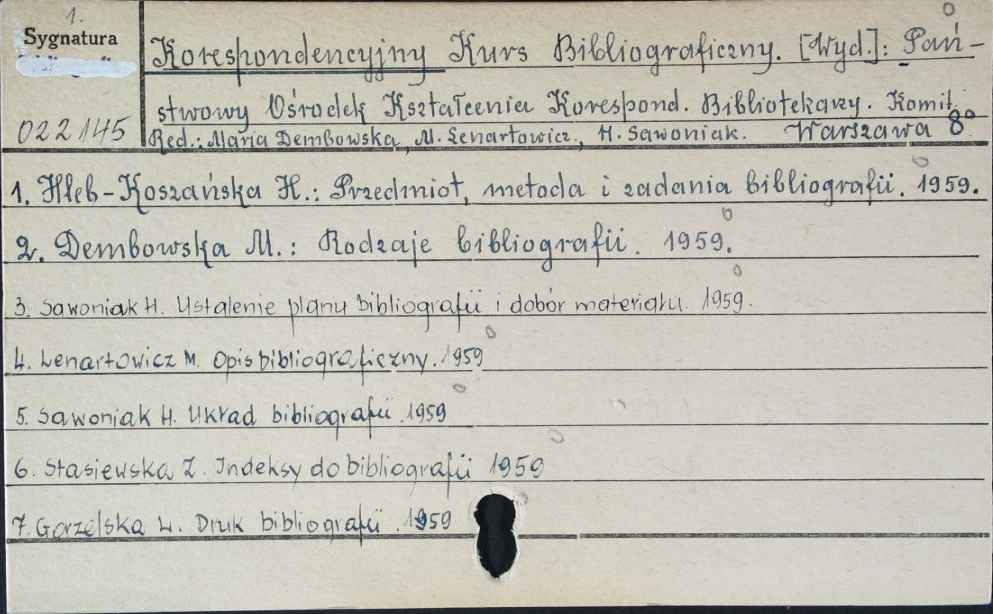 1.
Sygnatura
022145
Korespondencyjny Kurs Bibliograficzny. [Wyd.]: Pań-
stwowy Ośrodek Kształcenia Korespond. Bibliotekarzy. Komit.
Red.: Maria Dembowska, M. Lenartowicz, H. Sawoniak. Warszawa 8°
1. Hleb-Koszańska H.: Przedmiot, metoda i zadania bibliografii. 1959.
2. Dembowska M.: Rodzaje bibliografii. 1959.
3. Sawoniak H. Ustalenie planu bibliografii i dobór materiału. 1959.
4. Lenartowicz M. Opis bibliograficzny. 1959
5. Sawoniak H. Układ bibliografii. 1959
6. Stasiewska Z. Indeksy do bibliografii 1959
7. Gorzelska L. Druk bibliografii. 1959